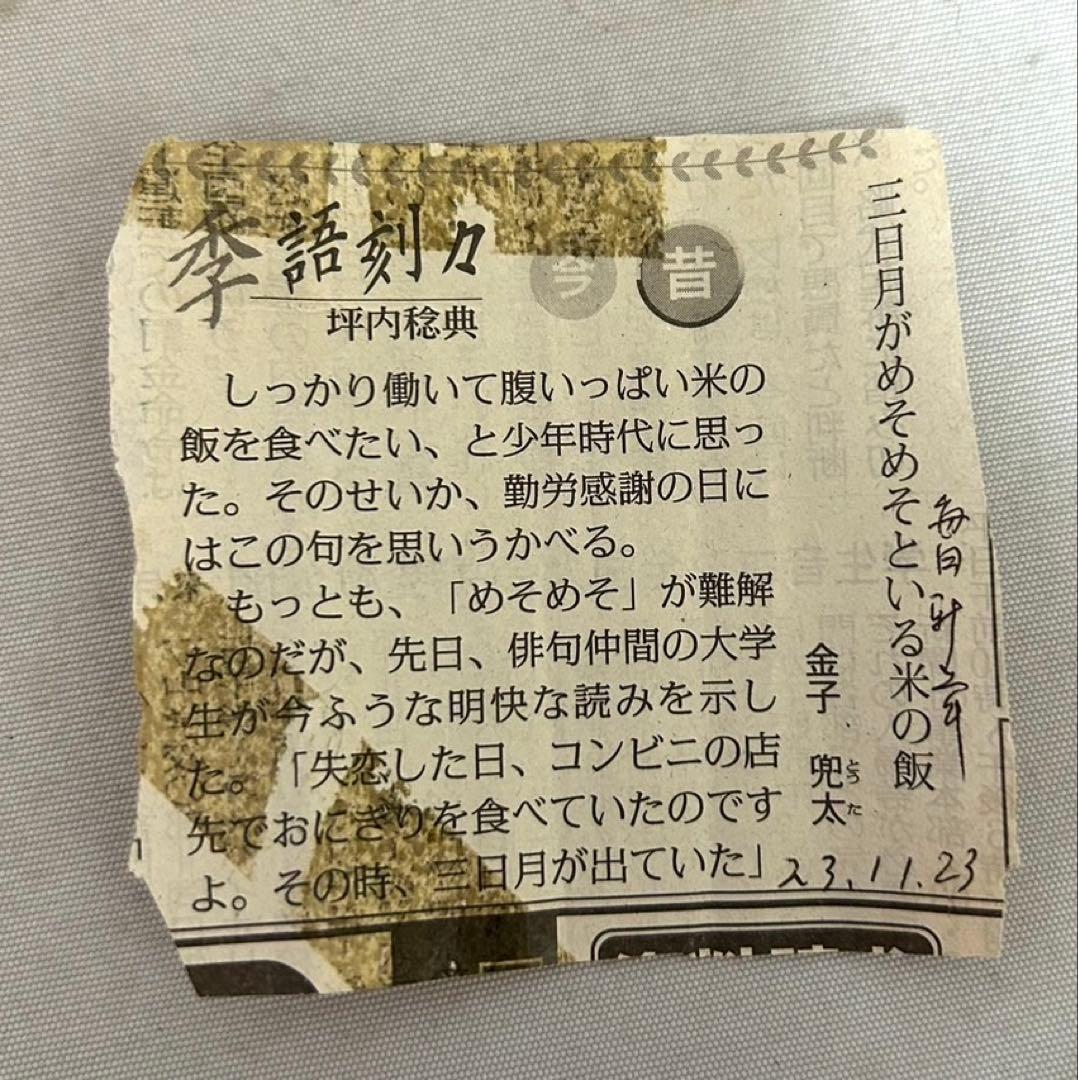 季語刻々
今
昔
坪内稔典
三日月がめそめそといる米の飯
金子 兜太
とうた
毎日新聞
しっかり働いて腹いっぱい米の
飯を食べたい、と少年時代に思っ
た。そのせいか、勤労感謝の日に
はこの句を思いうかべる。
もっとも、「めそめそ」が難解
なのだが、先日、俳句仲間の大学
生が今ふうな明快な読みを示し
た。「失恋した日、コンビニの店
先でおにぎりを食べていたのです
よ。その時、三日月が出ていた」
23.11.23